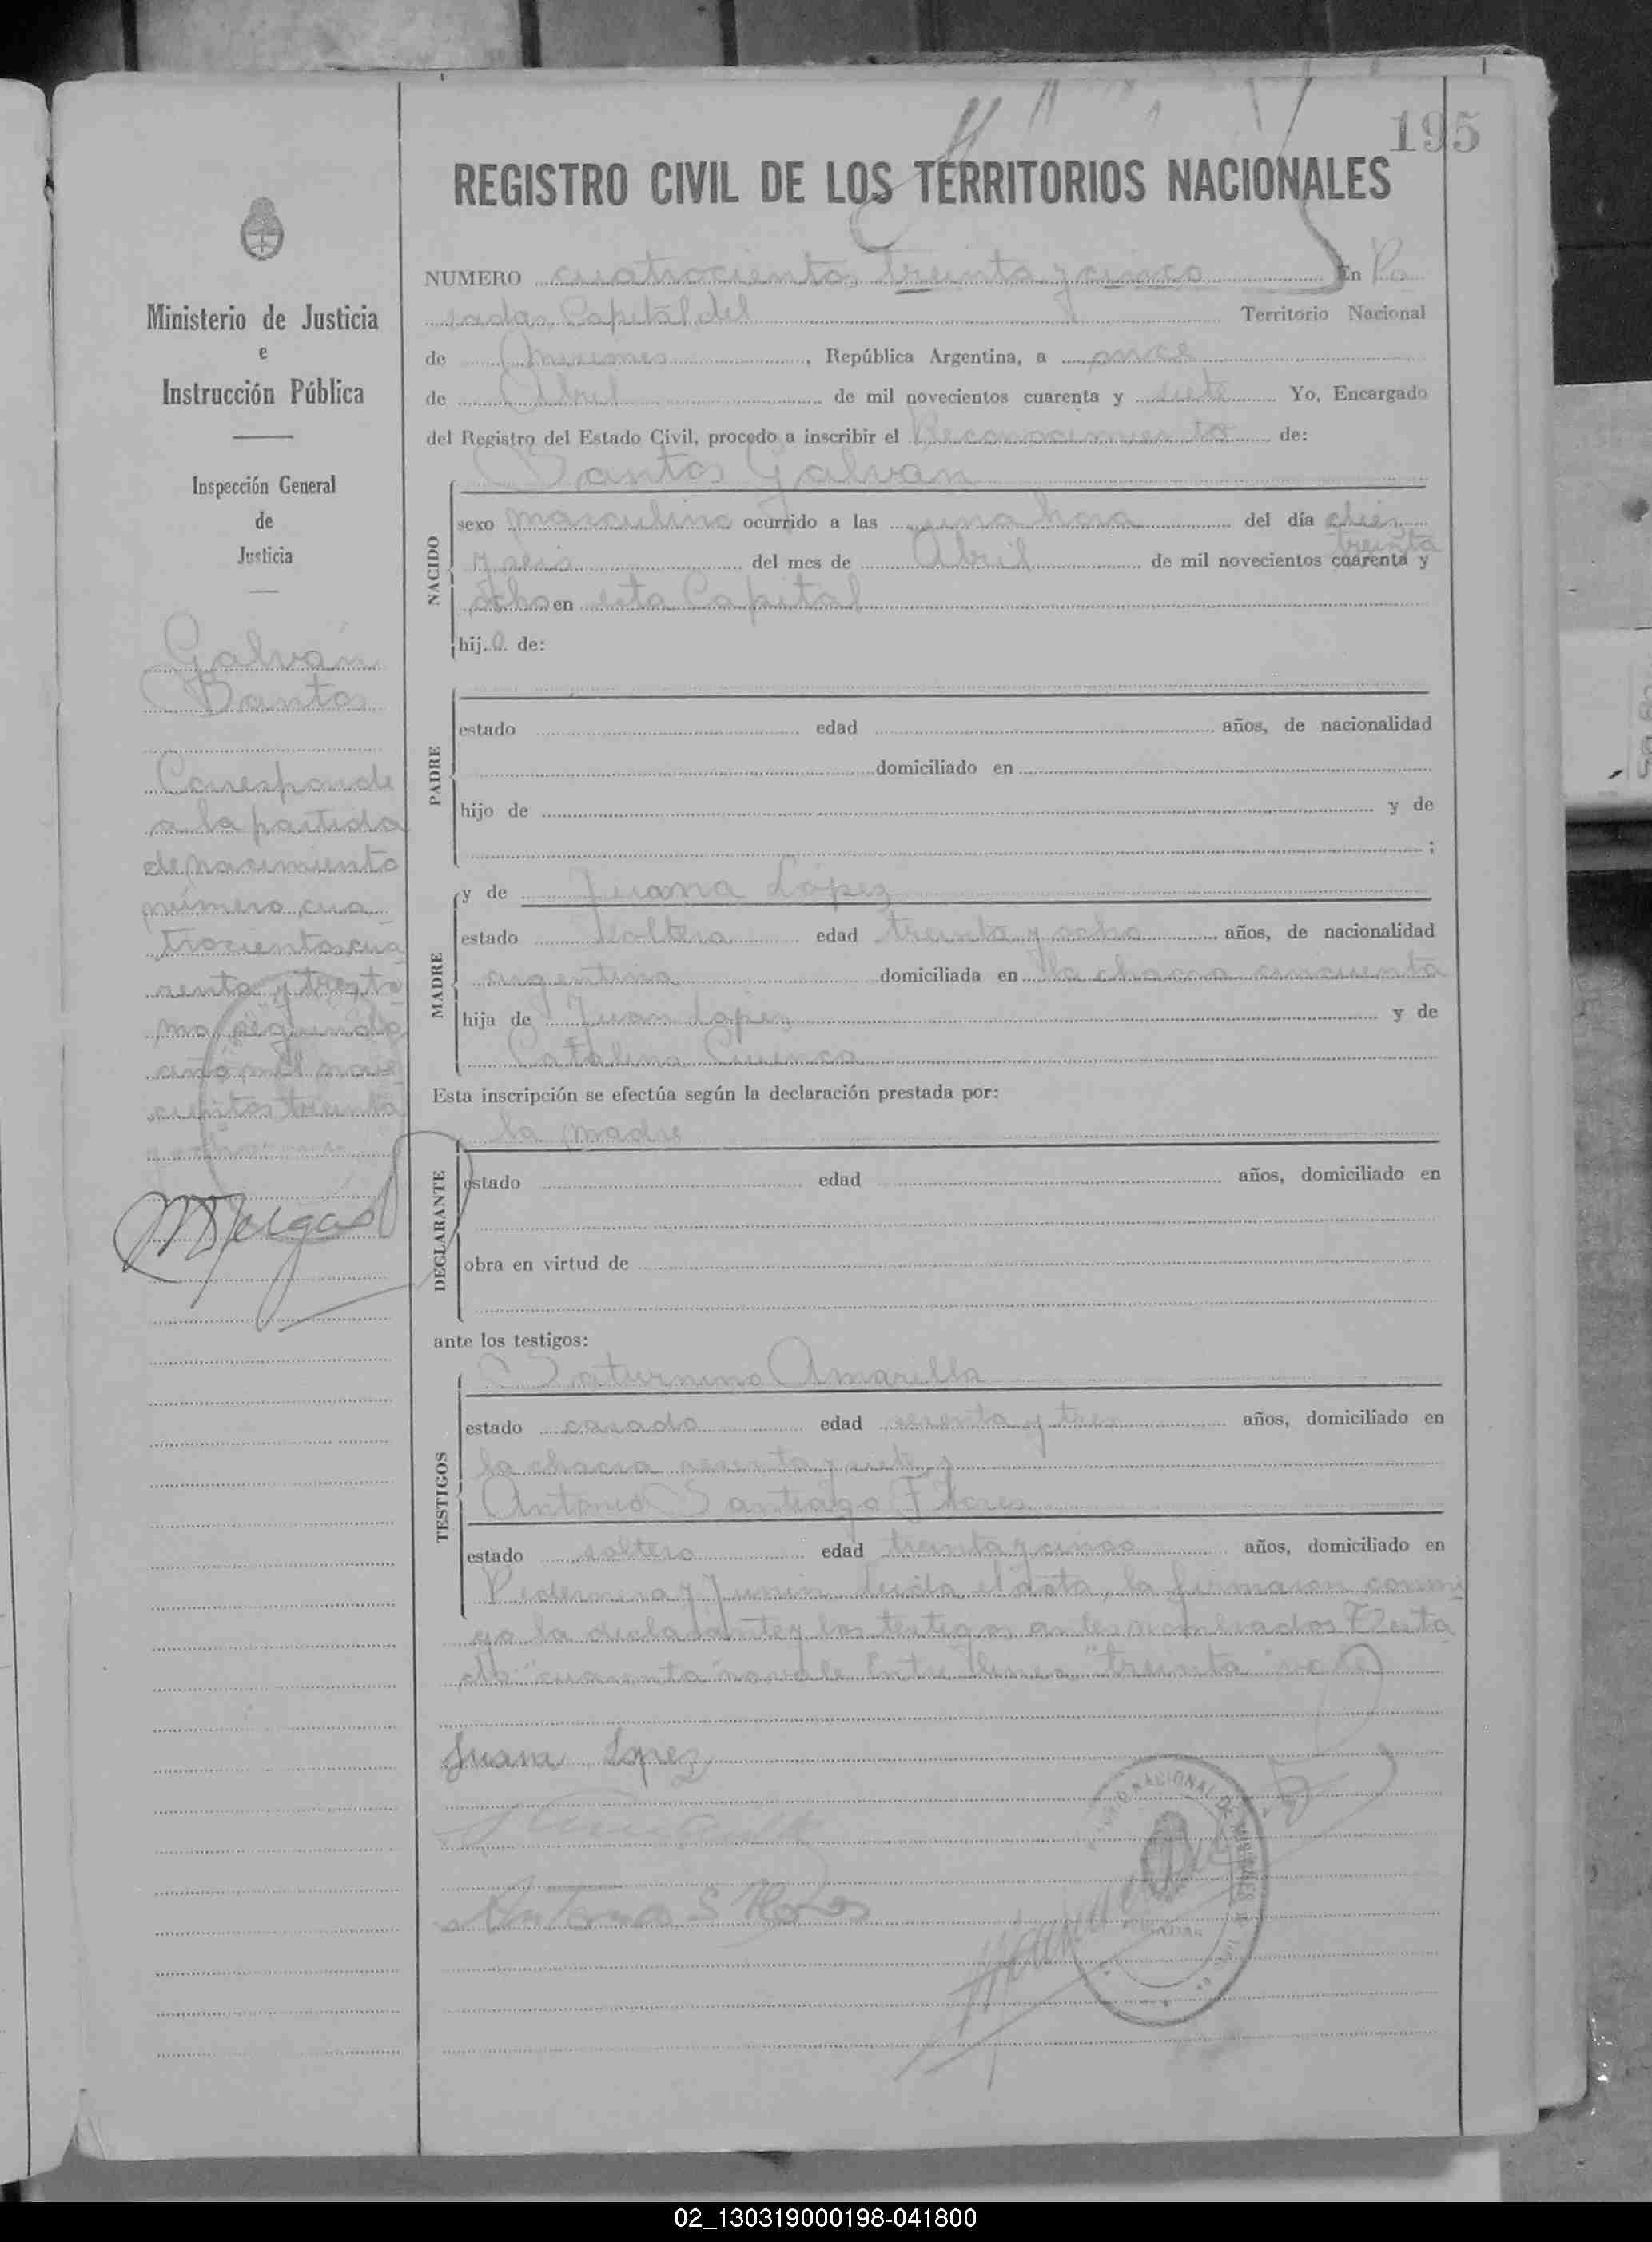 195
REGISTRO CIVIL DE LOS TERRITORIOS NACIONALES
Ministerio de Justicia
e
Instrucción Pública
Inspección General
de
Justicia
Galván
Santos
Corresponde
a la partida
de nacimiento
número cua
trocientos cua
renta y tres to
mo segundo
año mil nove
cientos treinta
y ocho
NUMERO cuatrocientos treinta y cinco En Po
sadas Capital del Territorio Nacional
de Misiones, República Argentina, a once
de Abril de mil novecientos cuarenta y siete Yo, Encargado
del Registro del Estado Civil, procedo a inscribir el Reconocimiento de:
Santos Galván
NACIDO
sexo masculino ocurrido a las una hora del día diez
treinta
y seis del mes de Abril de mil novecientos cuarenta y
ocho en esta Capital
hijo de:
PADRE
estado edad años, de nacionalidad
domiciliado en
hijo de y de
;
MADRE
y de Juana López
estado soltera edad treinta y ocho años, de nacionalidad
argentina domiciliada en la chacra cincuenta
hija de Juan López y de
Catalina
Esta inscripción se efectúa según la declaración prestada por:
la madre
DECLARANTE
estado edad años, domiciliado en
obra en virtud de
ante los testigos:
TESTIGOS
Saturnino Amarilla
estado casado edad sesenta y tres años, domiciliado en
la chacra sesenta y siete y
Antonio Santiago Flores
estado soltero edad treinta y cinco años, domiciliado en
Pedernera y Junin Leida el acta, la firmaron conmi
go la declarante y los testigos antes nombrados Testa
do "cuarenta" no vale Entre lineas "treinta" vale
Juana Lopez
Antonio S Flores
02_130319000198-041800